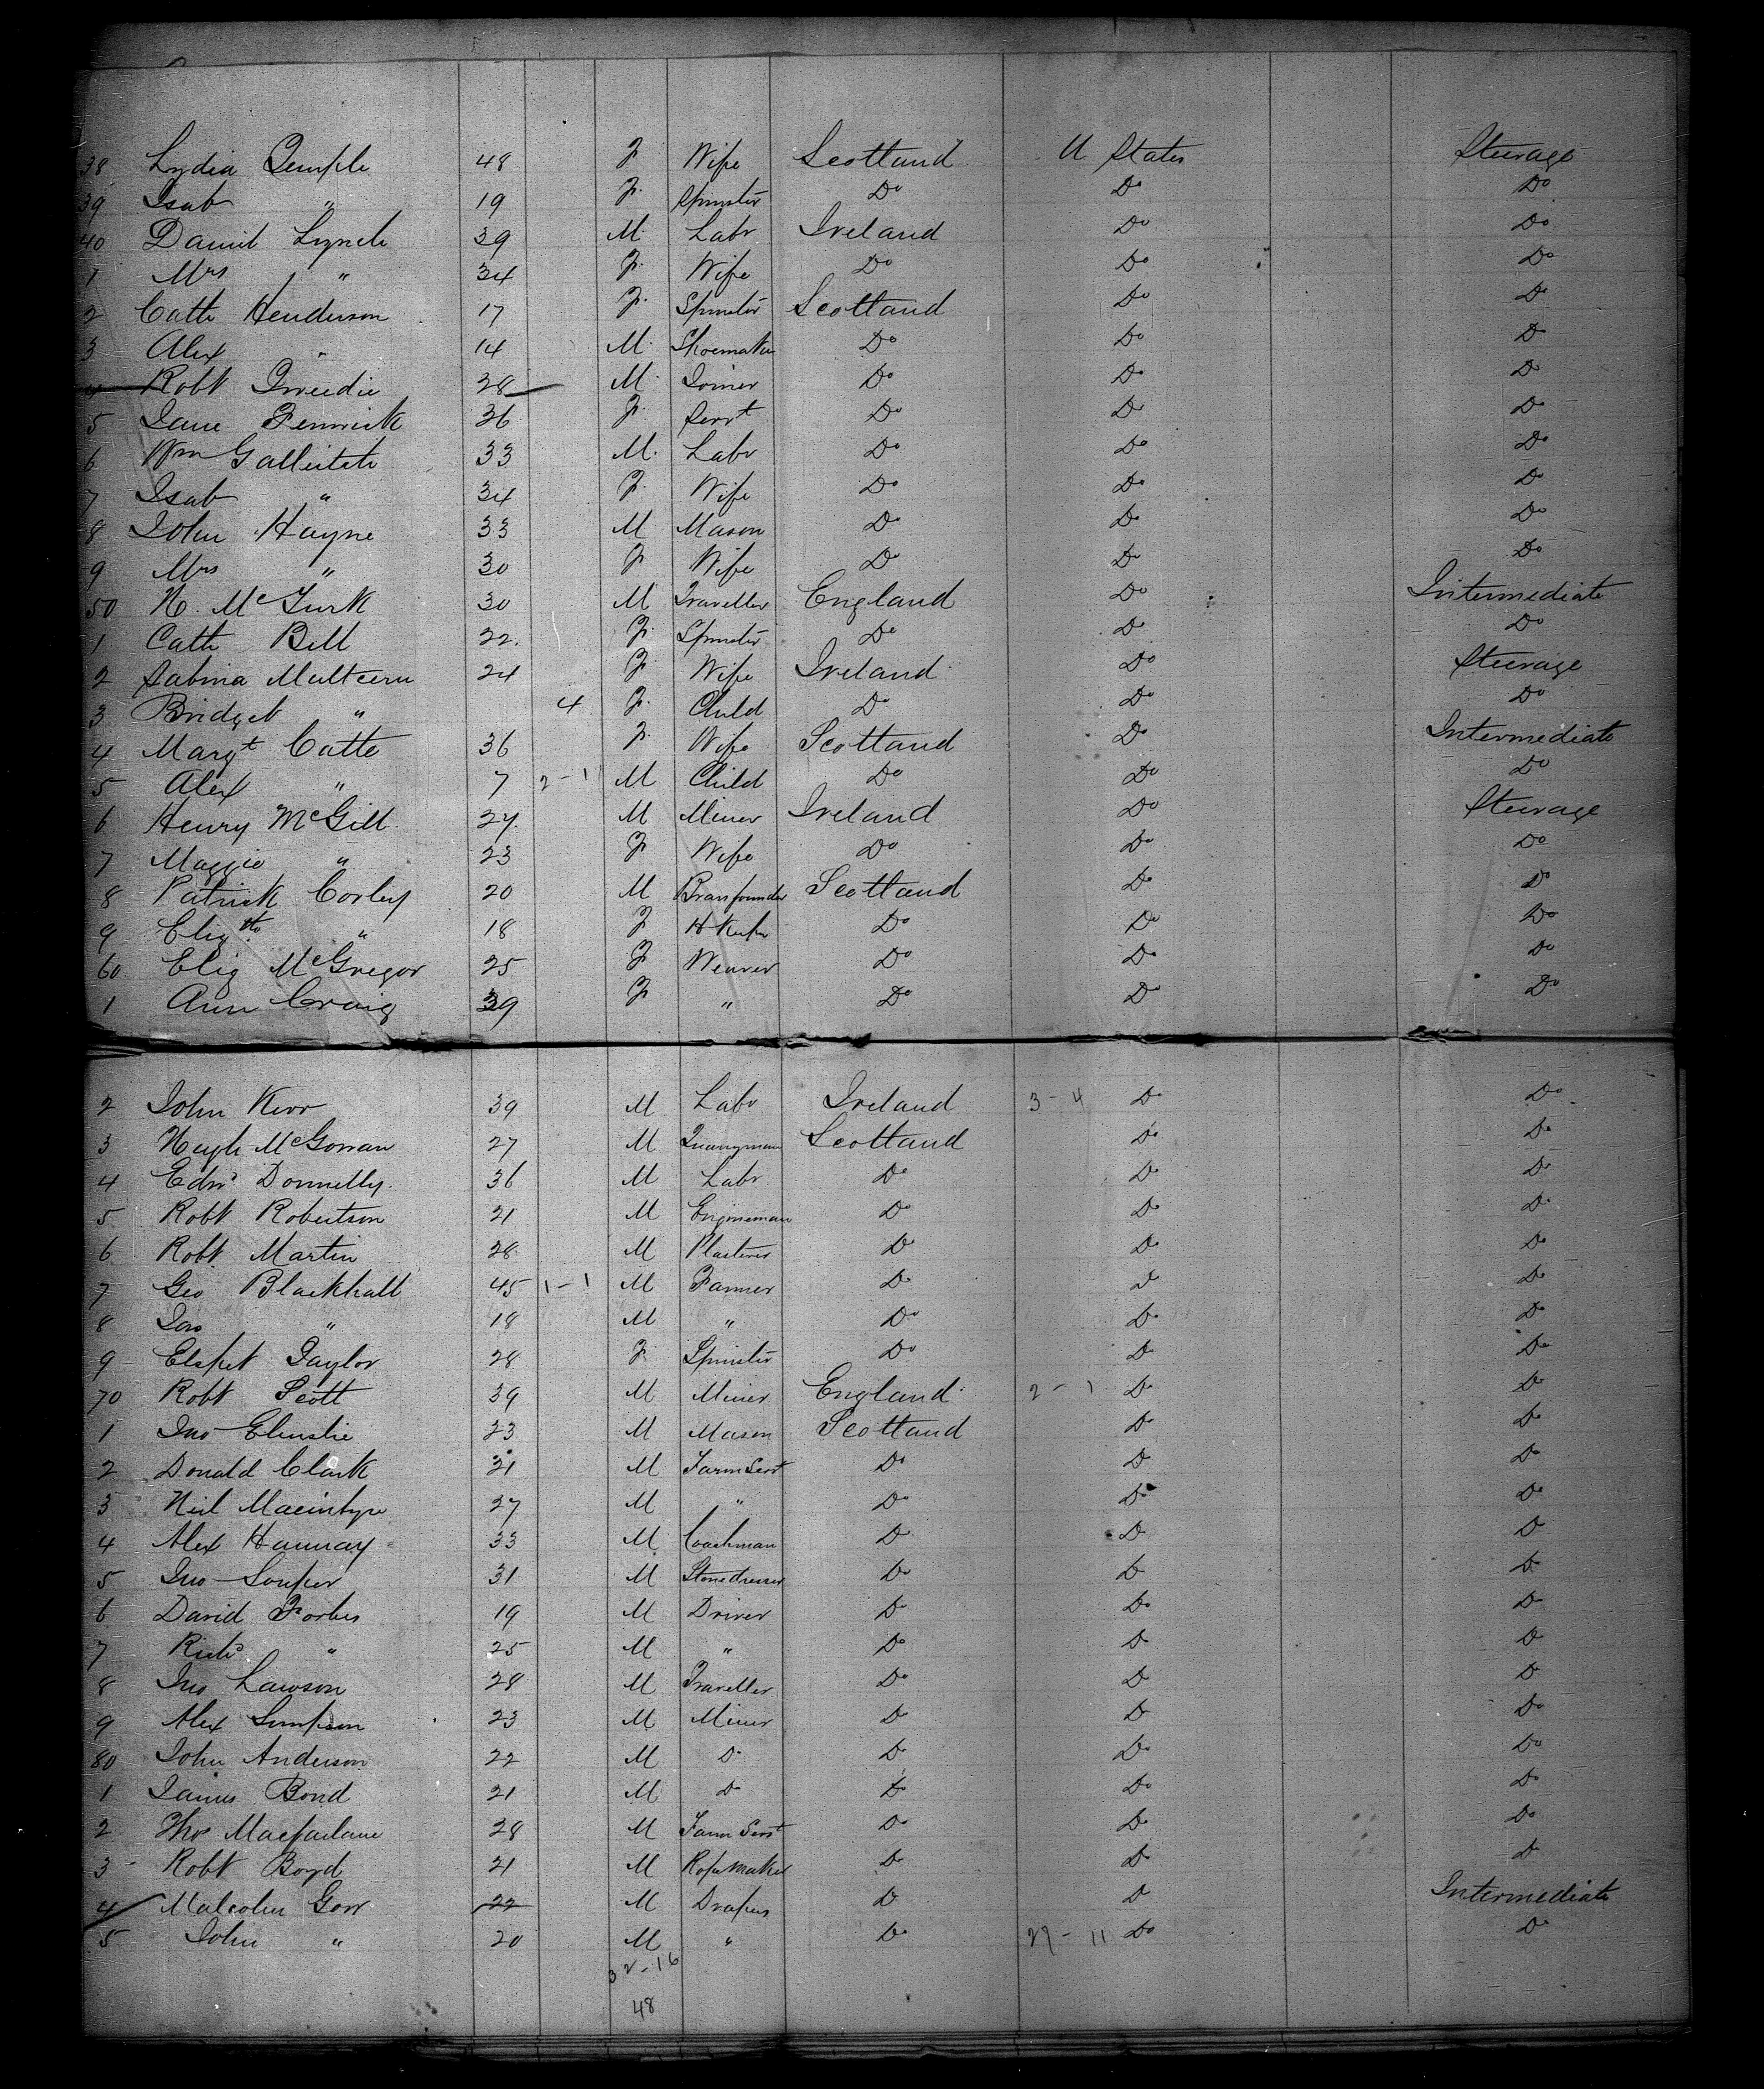 38 Lydia Temple 48 F Wife Scotland U States Steerage
39 Isab " 19 F Spinster Do Do Do
40 Daniel Lynch 39 M Labr Ireland Do Do
1 Mrs " 34 F Wife Do Do Do
2 Cath Henderson 17 F Spinster Scotland Do Do
3 Alex " 14 M Shoemaker Do Do Do
4 Robt Tweedie 28 M Joiner Do Do Do
5 Jane Fenwick 36 F Servt Do Do Do
6 Wm 33 M Labr Do Do Do
7 Isab " 34 F Wife Do Do Do
8 John Hayne 33 M Mason Do Do Do
9 Mrs " 30 F Wife Do Do Do
50 H. McGurk 30 M Traveller England Do Intermediate
1 Cath Bell 22 F Spinster Do Do Do
2 Sabina 24 F Wife Ireland Do Steerage
3 Bridget " 4 F Child Do Do Do
4 Margt Catto 36 F Wife Scotland Do Intermediate
5 Alex " 7 2-1 M Child Do Do Do
6 Henry McGill 27 M Miner Ireland Do Steerage
7 Maggie " 23 F Wife Do Do Do
8 Patrick Corley 20 M Brassfounder Scotland Do Do
9 Elizth " 18 F H Keeper Do Do Do
60 Eliz McGregor 25 F Weaver Do Do Do
1 Ann Craig 39 F " Do Do Do
2 John Kerr 39 M Labr Ireland 3-4 Do Do
3 Hugh McGowan 27 M Quarryman Scotland Do Do
4 Edwd Donnelly 36 M Labr Do Do Do
5 Robt Robertson 21 M Engineman Do Do Do
6 Robt Martin 28 M Plasterer Do Do Do
7 Geo Blackhall 45 1-1 M Farmer Do Do Do
8 Jas " 18 M " Do Do Do
9 Elspet Taylor 28 F Spinster Do Do Do
70 Robt Scott 39 M Miner England 2-1 Do Do
1 Jno Elmslie 23 M Mason Scotland Do Do
2 Donald Clark 31 M Farm Servt Do Do Do
3 Neil Macintyre 27 M " Do Do Do
4 Alex Hannay 33 M Coachman Do Do Do
5 Jno Souper 31 M Stonedresser Do Do Do
6 David Forbes 19 M Driver Do Do Do
7 Richd " 25 M " Do Do Do
8 Jno Lawson 28 M Traveller Do Do Do
9 Alex Simpson 23 M Miner Do Do Do
80 John Anderson 22 M Do Do Do Do
1 James Bond 21 M Do Do Do Do
2 Thos Macfarlane 28 M Farm Servt Do Do Do
3 Robt Boyd 21 M Ropemaker Do Do Do
4 Malcolm Gow 22 M Drapers Do Do Intermediate
5 John " 20 M " Do 29-11 Do Do
32-16
48